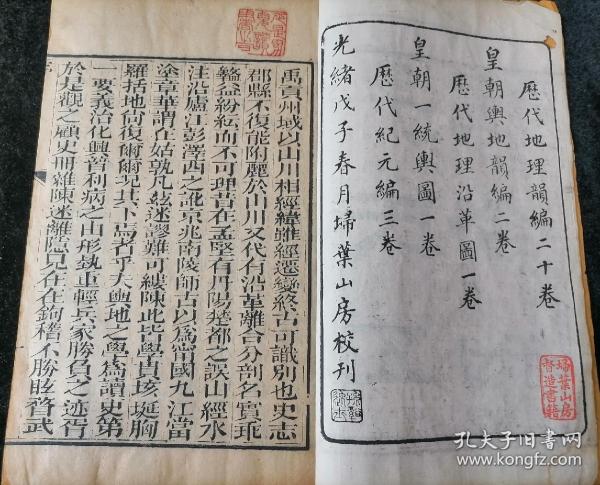 歷代地理韻編二十卷
皇朝輿地韻編二卷
歷代地理沿革圖一卷
皇朝一統輿圖一卷
歷代紀元編三卷
光緒戊子春月埽葉山房校刊
埽葉山房
督造書籍
禹貢州域以山川相經緯雖經遷變終古可識別也史志
郡縣不復能附麗於山川又代有沿革離合分剖名實乖
盭益紛紜而不可理昔在孟堅有丹陽楚都之誤山經水
注沿廬江彭澤西之訛京兆南陵師古以為當國九江當
塗章華謂在姑孰凡茲迷謬難可縷陳此皆學貫垓埏胸
羅括地尚復爾爾況其下焉者乎夫輿地之學為讀史第
一要義治化興替利病之山形埶重輕兵家勝負之迹胥
於是觀之顧史冊雜陳迷離隱見在在鉤稽不勝眩瞀武
序
孔夫子旧书网
www.kongfz.com